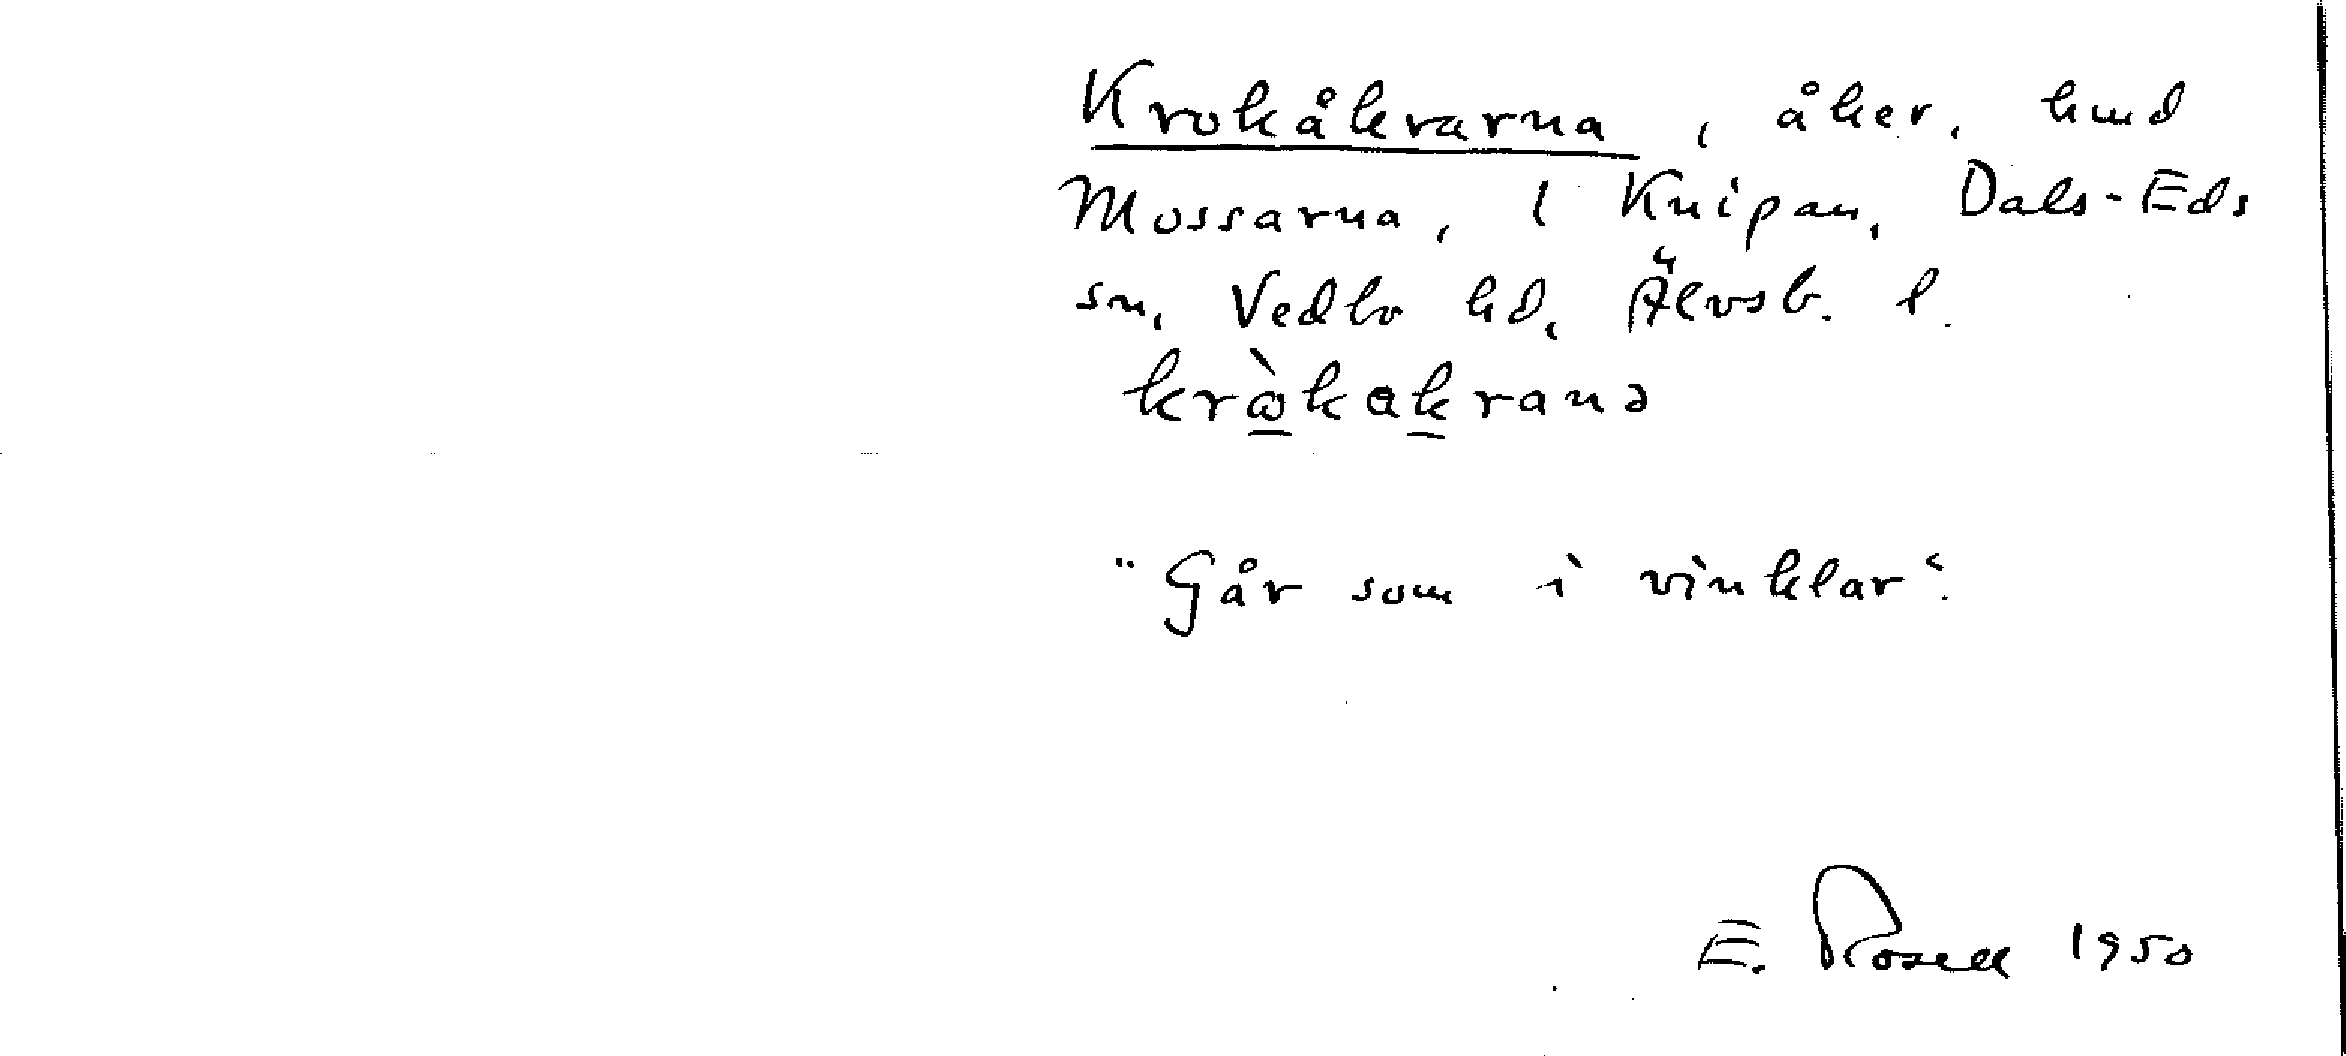 Krokåkrarna, åker, hmd
Mossarna, 1 Knipan, Dals-Eds
sn, Vedbo hd, Älvsb. l.
krὼkakranə
"Går som i vinklar".
E. Rosell 1950